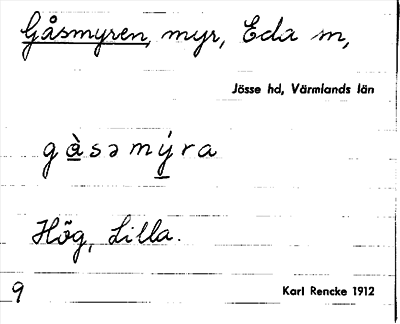 Gåsmyren, myr, Eda m,
Jösse hd, Värmlands län
gàsəmýra
Hög, Lilla.
9
Karl Rencke 1912